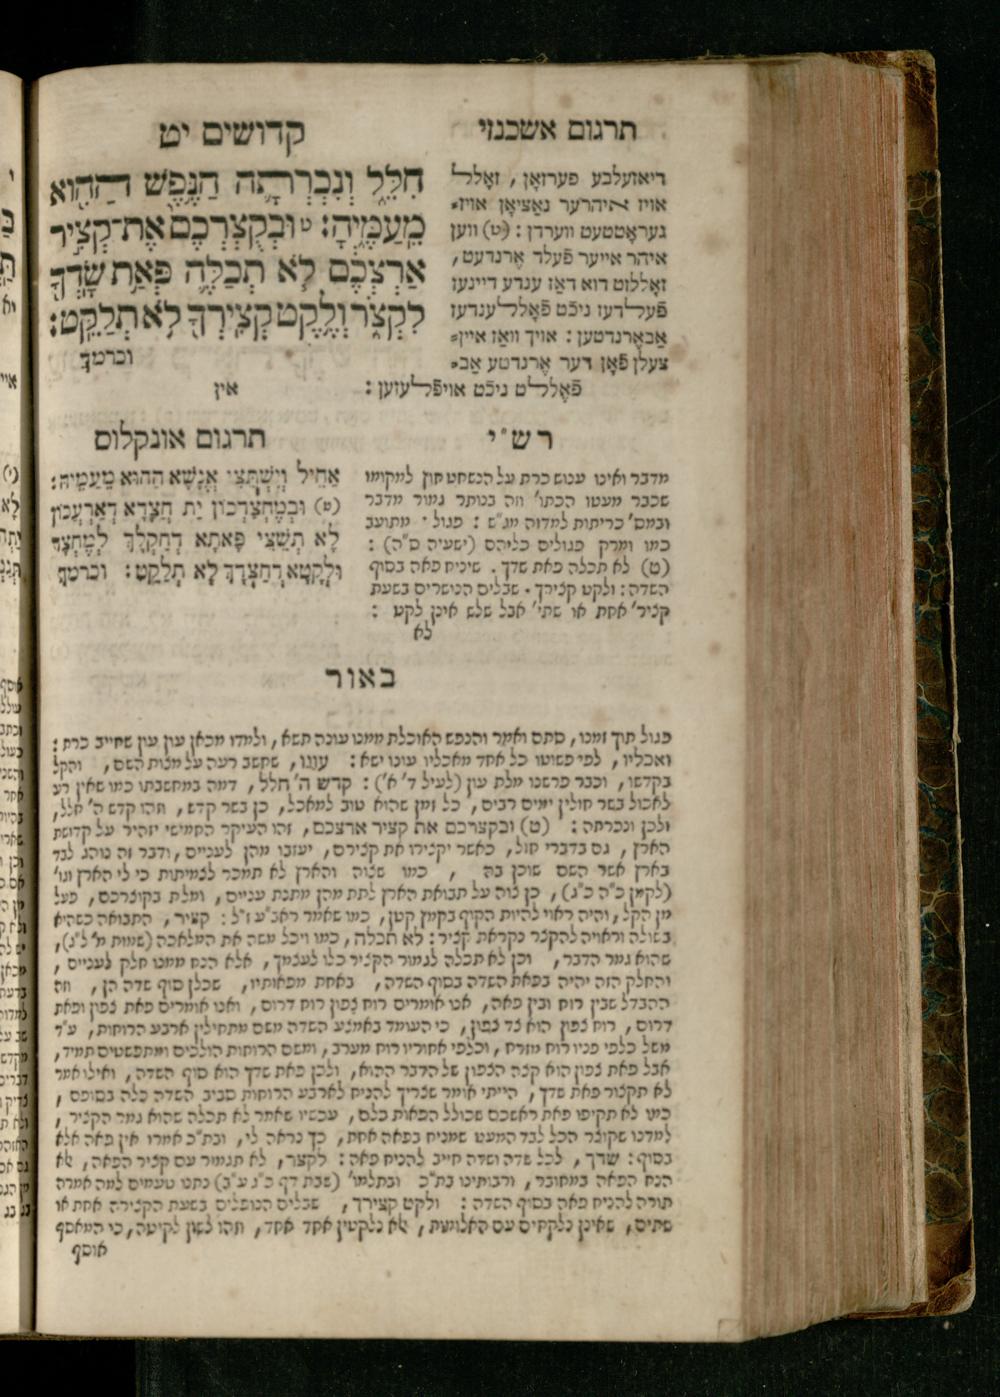 תרגום אשכנזי
קדושים יט
חִלֵּל וְנִכְרְתָה הַנֶּפֶשׁ הַהִוא
מֵעַמֶּיהָ: ט וּבְקֻצְרְכֶם אֶת־קְצִיר
אַרְצְכֶם לֹא תְכַלֶּה פְּאַת שָׂדְךָ
לִקְצֹר וְלֶקֶט קְצִירְךָ לֹא תְלַקֵּט:
וכרמך
דיאזעלבע פערזאָן, זאָלל
אויז איהרער נאַציאָן אויז⸗
געראָטטעט ווערדן: (ט) ווען
איהר אייער פֿעלד אֶרנדעט,
זאָללזט דוא דאַז ענדע דיינעז
פֿעלדעז ניכֿט פֿאָללענדעז
אַבאֶרנדטען: אויך וואַז איין⸗
צעלן פֿאָן דער אֶרנדטע אַב⸗
פֿאֶללט ניכֿט אויפֿלעזען:
אין
רש״י
מדבר ואינו ענוש כרת על הנשחט חוץ למקומו
שכבר מעטו הכתו׳ וזה בנותר גמור מדבר
ובמס׳ כריתות למדוה מג״ש: פגול. מתועב
כמו ומרק פגולים כליהם (ישעיה ס״ה):
(ט) לא תכלה פאת שדך. שיניח פאה בסוף
השדה: ולקט קצירך. שבלים הנושרים בשעת
קציר׳ אחת או שתי׳ אבל שלש אינן לקט:
לא
תרגום אונקלוס
אַחֵיל וְיִשְׁתֵּצֵי אֲנָשָׁא הַהוּא מֵעַמֵּיהּ:
(ט) וּבְמֶחְצַדְכוֹן יַת חֲצָדָא דְאַרְעֲכוֹן
לָא תְשֵׁצֵי פָּאתָא דְחַקְלָךְ לְמֶחְצָד
וּלְקָטָא דַחֲצָדָךְ לָא תְלַקֵּט: וכרמך
באור
פגול תוך זמנו, סתם ואמר והנפש האוכלת ממנו עונה תשא, ולמדו מכאן עון עון שחייב כרת:
ואכליו, לפי פשוטו כל אחד מאכליו עונו ישא: עונו, שחשב רעה על מצות השם, והקל
בקדשו, וכבר פרשנו מלת עון (לעיל ד׳ א׳): קדש ה׳ חלל, דמה במחשבתו כמו שאין רע
לאכול בשר חולין ימים רבים, כל זמן שהוא טוב למאכל, כן בשר קדש, וזהו קדש ה׳ חלל,
ולכן ונכרתה: (ט) ובקצרכם את קציר ארצכם, זהו העיקר החמישי יזהיר על קדושת
הארץ, גם בדברי חול, כאשר יקצירו את קצירם, יעזבו מהן לעניים, ודבר זה נוהג לבד
בארץ אשר השם שוכן בה, כמו שצוה והארץ לא תמכר לצמיתות כי לי הארץ וגו׳
(לקמן כ״ה כ״ג), כן צוה על תבואת הארץ לתת מהן מתנת עניים, ומלת בקוצרכם, פעל
מן הקל, והיה ראוי להיות הקוף בקמץ קטן, כמו שאמר ראב״ע ז״ל: קציר, התבואה כשהיא
בשולה וראויה להקצר נקראת קציר: לא תכלה, כמו ויכל משה את המלאכה (שמות מ׳ ל״ג),
שהוא גמר הדבר, וכן לא תכלה לגמור הקציר כלו לעצמך, אלא הנח ממנו חלק לעניים,
והחלק הזה יהיה בפאת השדה בסוף השדה, באחת מפאותיו, שכלן סוף שדה הן, וזה
ההבדל שבין רוח ובין פאה, אנו אומרים רוח צפון רוח דרום, ואנו אומרים פאת צפון ופאת
דרום, רוח צפון הוא צד צפון, כי העומד באמצע השדה משם מתחילין ארבע הרוחות, ע״ד
משל כלפי פניו רוח מזרח, וכלפי אחוריו רוח מערב, ומשם הרוחות הולכים ומתפשטים תמיד,
אבל פאת צפון הוא קצה הצפון של הדבר ההוא, ולכן פאת שדך הוא סוף השדה, ואילו אמר
לא תקצור פאת שדך, הייתי אומר שצריך להניח לארבע הרוחות סביב השדה כלה בסופם,
כמו לא תקיפו פאת ראשכם שכולל הפאות כלם, עכשיו שאמר לא תכלה שהוא גמר הקציר,
למדנו שקוצר הכל לבד המעט שמניח בפאה אחת, כך נראה לי, ובת״כ אמרו אין פאה אלא
בסוף: שדך, לכל שדה ושדה חייב להניח פאה: לקצר, לא תגמור עם קציר הפאה, אלא
הנח הפאה במחובר, ורבותינו בת״כ ובתלמו׳ (שבת דף כ״ג ע״ב) נתנו טעמים למה אמרה
תורה להניח פאה בסוף השדה: ולקט קצירך, שבלים הנופלים בשעת הקצירה אחת או
שתים, שאינן נלקחים עם האלומות, אלא נלקטין אחד אחד, וזהו לשון לקיטה, כי המאסף
אוסף